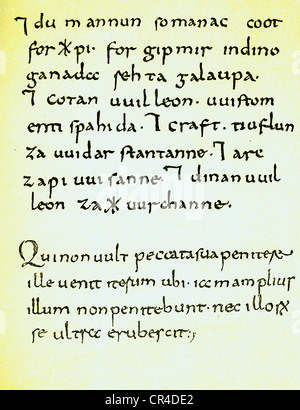 ⁊ du mannun so manac coot
for ᚷpi. for gip mir indino
ganadcc rehta galaupa.
⁊ cotan uuilleon. uuistom
enti spahida. ⁊ craft. tiuflun
za uuidar stantanne. ⁊ arc
za pi uuisanne. ⁊ dinan uuil
leon za ᚷ uurchanne.
Qui non vult peccata sua penitere
ille venit iterum ubi. icc amplius
illum non penitebunt. nec illorꝝ
se ultrcc erubescit:,
CR4DE2